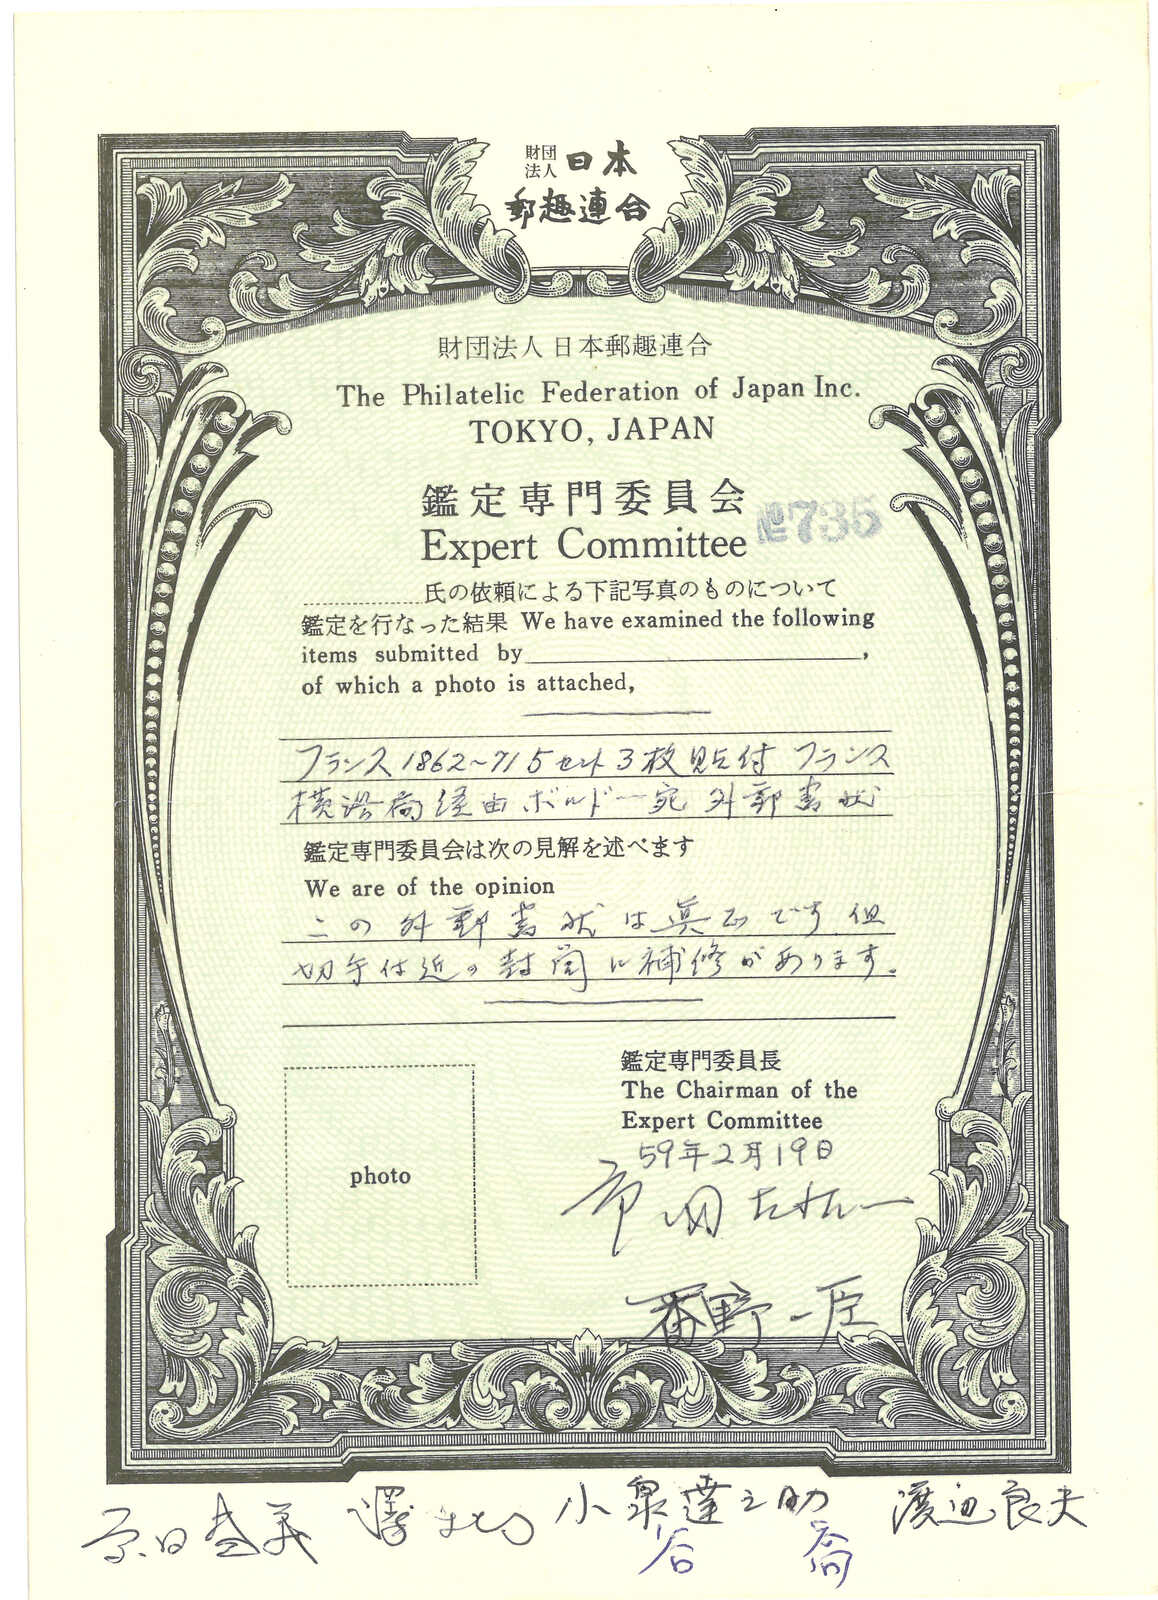 財団
法人 日本
郵趣連合
財団法人 日本郵趣連合
The Philatelic Federation of Japan Inc.
TOKYO, JAPAN
鑑定専門委員会
Expert Committee
№735
氏の依頼による下記写真のものについて
鑑定を行なった結果 We have examined the following
items submitted by ,
of which a photo is attached,
フランス1862~71 5セント3枚貼付 フランス
横浜局経由ボルドー宛 外郵書状
鑑定専門委員会は次の見解を述べます
We are of the opinion
この外郵書状は真正です 但
切手付近の封筒に補修があります。
鑑定専門委員長
The Chairman of the
Expert Committee
59年2月19日
photo
番野
小泉達之助 渡辺良夫
谷 喬